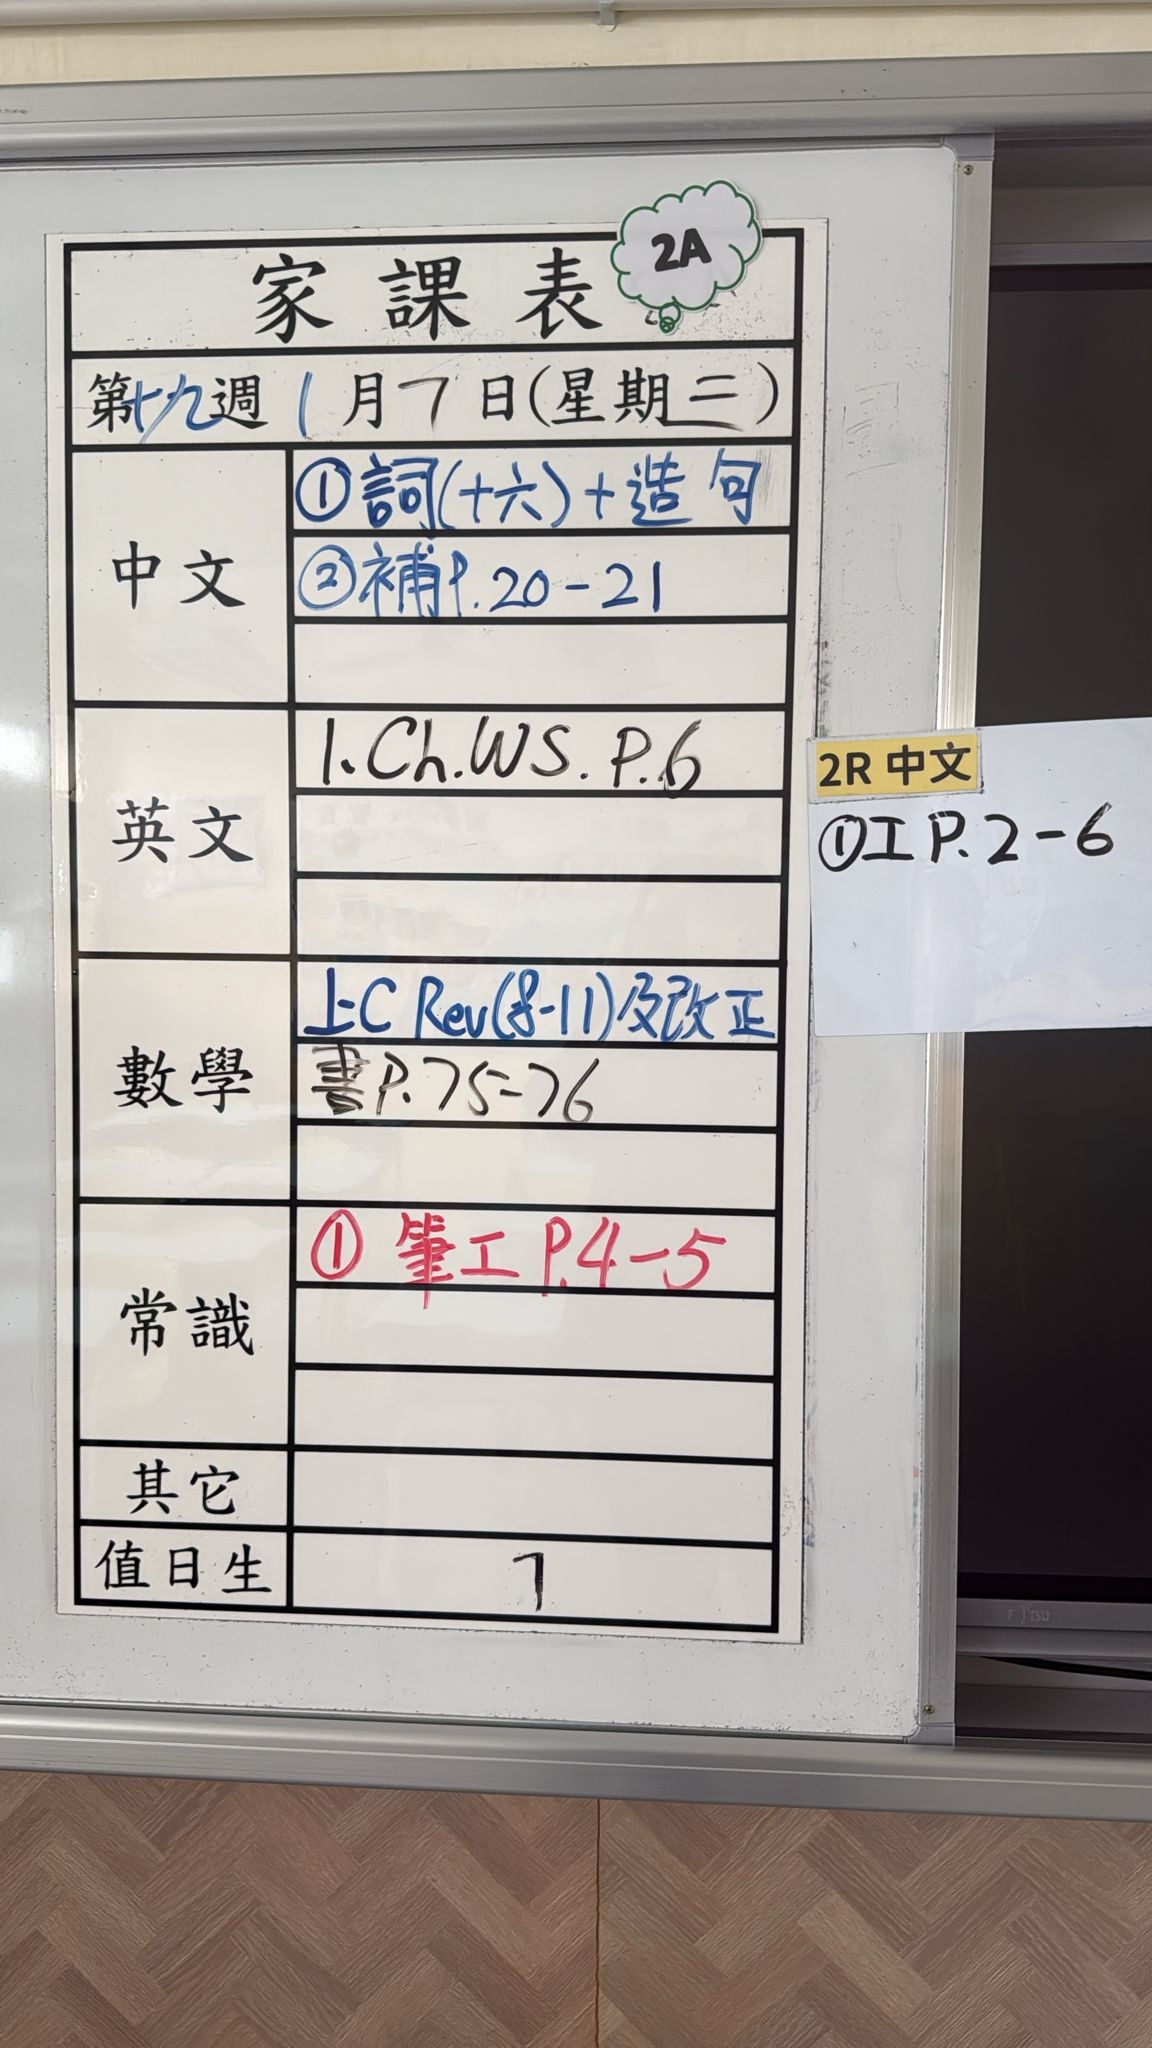 2A
家課表
第十九週 1月7日(星期三)
中文
①詞(十六)+造句
②補P.20-21
英文
1.Ch.WS.P.6
數學
上C Rev(8-11)及改正
書P.75-76
常識
① 筆工P.4-5
其它
值日生
7
2R 中文
①工P.2-6
FUJITSU